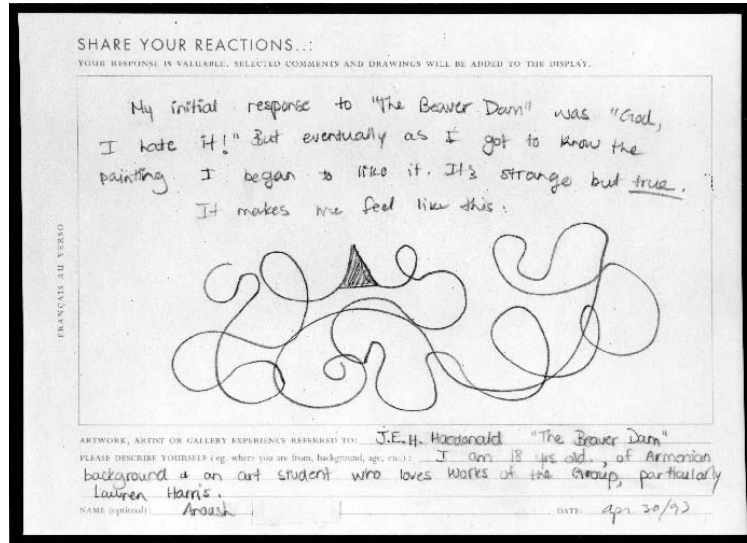 SHARE YOUR REACTIONS...:
YOUR RESPONSE IS VALUABLE. SELECTED COMMENTS AND DRAWINGS WILL BE ADDED TO THE DISPLAY.
My initial response to "The Beaver Dam" was "God,
I hate it!" But eventually as I got to know the
painting I began to like it. It's strange but true.
It makes me feel like this:
FRANÇAIS AU VERSO
ARTWORK, ARTIST OR GALLERY EXPERIENCE REFERRED TO: J.E.H. Macdonald "The Beaver Dam"
PLEASE DESCRIBE YOURSELF (eg. where you are from, background, age, etc.): I am 18 yrs old., of Armenian
background & an art student who loves works of the Group, particularly
Lawren Harris.
NAME (optional): Anoush DATE: apr. 30/93